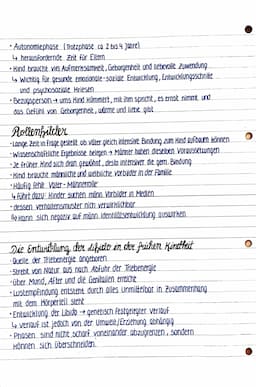 · Autonomiephase (Trotzphase ca 2 bis 4 Jahre)
↳ herausfordernde Zeit für Eltern
· Kind braucht viel Aufmerksamkeit, Geborgenheit und liebevolle Zuwendung
↳ Wichtig für gesunde emotionale-soziale Entwicklung, Entwicklungsschritte
und psychosoziale Krisen
· Bezugsperson → ums Kind kümmert, mit ihm spricht, es ernst nimmt und
das Gefühl von Geborgenheit, wärme und liebe gibt
Rollenbilder
· Lange Zeit in Frage gestellt ob väter gleich intensive Bindung zum Kind aufbauen können
· Wissenschaftliche Ergebnisse belegen → Männer haben dieselben Voraussetzungen
· Je früher Kind sich dran gewöhnt, desto intensiver die gem. Bindung
· Kind braucht männliche und weibliche Vorbilder in der Familie
· Häufig fehlt Vater - Männerrolle
↳ führt dazu: Kinder suchen männl. Vorbilder in Medien
· dessen verhaltensmuster nich verwirklichbar
↳ kann sich negativ auf männl. Identitätsentwicklung auswirken
Die Entwicklung der Libido in der frühen Kindheit
· Quelle der Triebenergie angeboren
· Strebt von Natur aus nach Abfuhr der Triebenergie
· Über Mund, After und die Genitalien erreicht
· Lustempfindung entsteht durch alles Unmittelbar in Zusammenhang
mit dem Körperteil steht
· Entwicklung der Libido → genetisch festgelegter verlauf
↳ verlauf ist jedoch von der Umwelt/Erziehung abhängig
· Phasen sind nicht scharf voneinander abzugrenzen, sondern
können sich überschneiden.